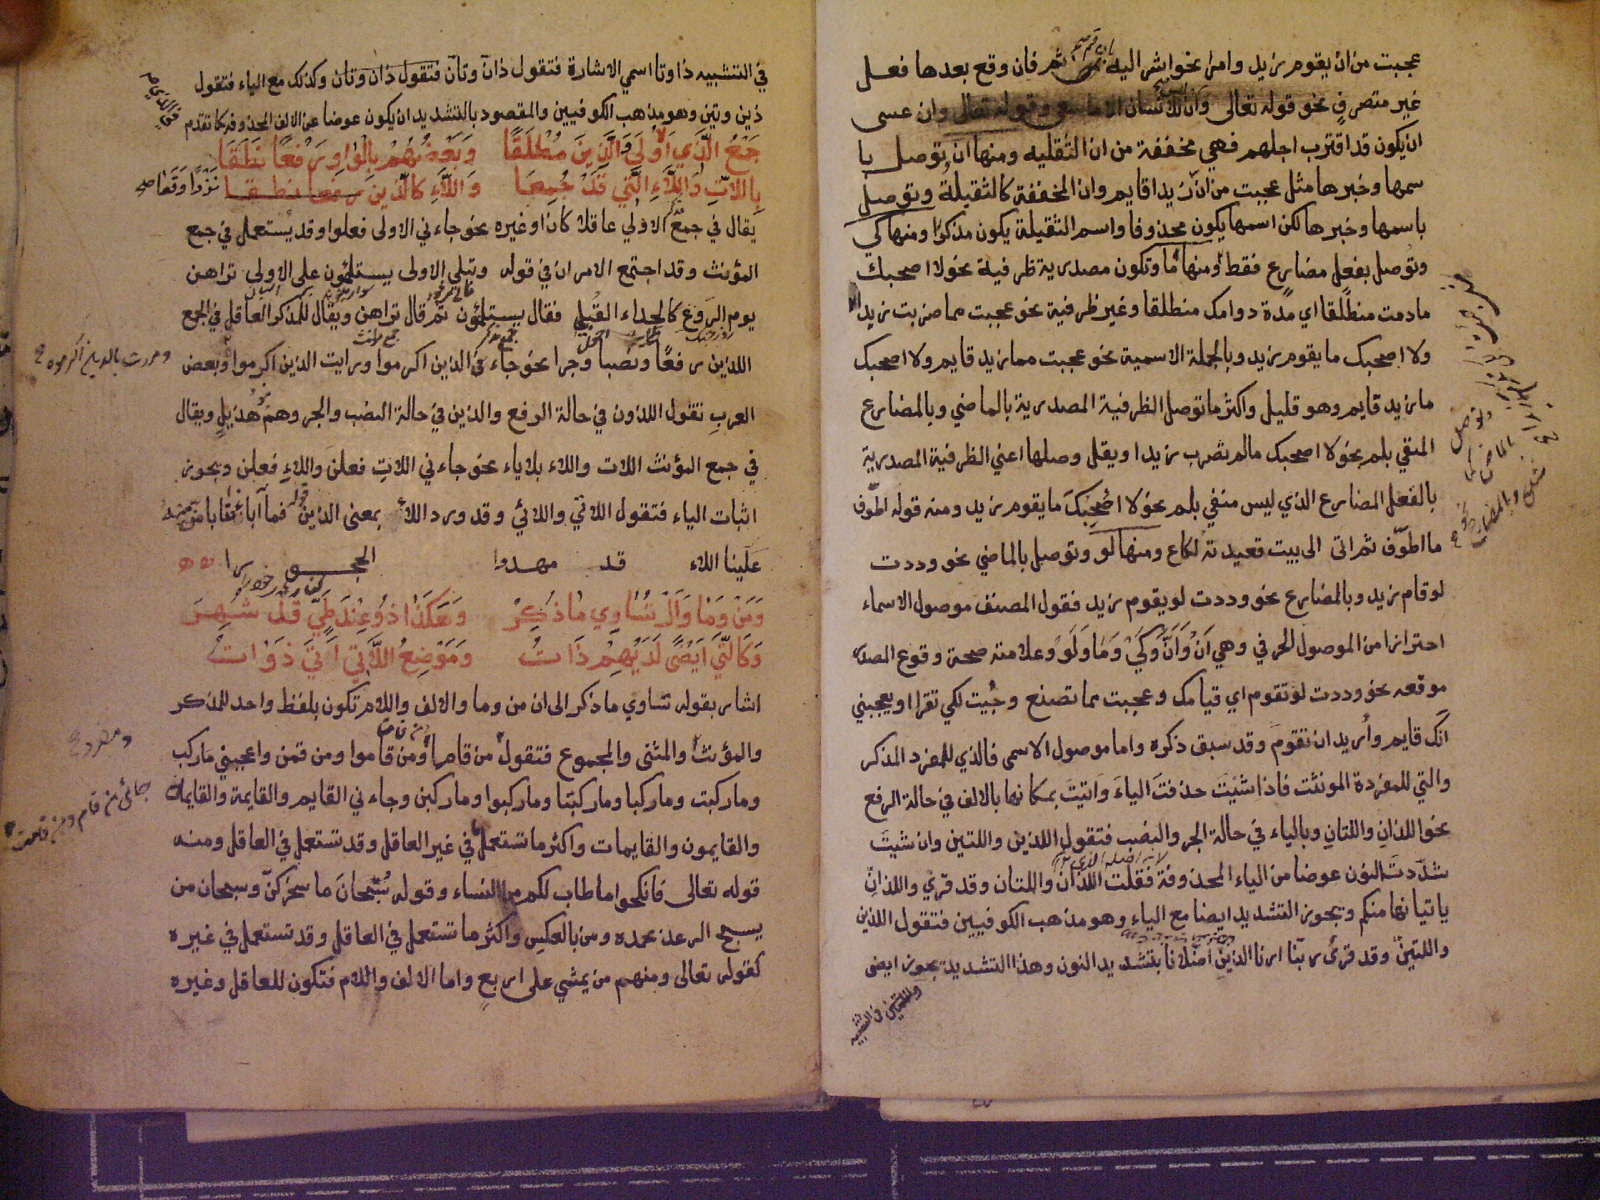 عجبت من ان يقوم زيد وامرا نحو اشر اليه بان قم ثم فان وقع بعدها فعل
غير متصرف نحو قوله تعالى وان للانسان الا ما سعى وقوله تعالى وان عسى
ان يكون قد اقترب اجلهم فهي مخففة من ان الثقليه ومنها ان وتوصل با
سمها وخبرها مثل عجبت من ان زيدا قايم وان المخففة كالثقيلة وتوصل
باسمها وخبرها لكن اسمها يكون محذوفا واسم الثقيلة يكون مذكورا ومنها كي
وتوصل بفعل مضارع فقط ومنها ما وتكون مصدرية ظرفية نحو لا اصحبك
ما دمت منطلقا اي مدة دوامك منطلقا وغير ظرفية نحو عجبت مما ضربت زيدا
ولا اصحبك ما يقوم زيد وبالجملة الاسمية نحو عجبت مما زيد قايم ولا اصحبك
ما زيد قايم وهو قليل واكثر ما توصل الظرفية المصدرية بالماضي وبالمضارع
المنفي بلم نحو لا اصحبك ما لم تضرب زيدا ويقل وصلها اعني الظرفية المصدرية
بالفعل المضارع الذي ليس منفي بلم نحو لا اصحبك ما يقوم زيد ومنه قوله اطوّف
ما اطوّف ثم اتى الى بيت قعيدته لكاع ومنها لو وتوصل بالماضي نحو وددت
لو قام زيد وبالمضارع نحو وددت لو يقوم زيد فقول المصنف موصول الاسماء
احترازا من الموصول الحرفي وهي اَنْ وَاَنَّ وَكَيْ وَمَا وَلَوْ وعلامته صحة وقوع المصدر
موقعه نحو وددت لو تقوم اي قيامك وعجبت مما تصنع وجيت لكي تقرا ويعجبني
انك قايم واريد ان تقوم وقد سبق ذكره واما موصول الاسمي فالذي للمفرد المذكر
والتي للمفردة المونثت فاذا ثنيت حذفت الياء واتيت بمكانها بالالف في حالة الرفع
نحو اللذان واللتان وبالياء في حالة الجر والنصب فتقول اللذين واللتين وان شيت
شدّدت النون عوضا من الياء المحذوفة فقلت اللذانّ واللتان وقد قري واللذان
ياتيانها منكم ويجوز التشديد ايضا مع الياء وهو مذهب الكوفيين فتقول اللذين
واللتين وقد قرئ ربنا ارنا الذين اضلانا بتشديد النون وهذا التشديد يجوز ايضى
في التشبيه ذا وتا اسمي الاشارة فتقول ذانّ وتانّ فتقول ذان وتان وكذلك مع الياء فتقول
ذين وتين وهو مذهب الكوفيين والمقصود بالتشديد ان يكون عوضا عن الالف المحذوفه كما تقدم
جَمْعُ الَّذِي اَلْاُولَى وَالَّذِينَ مُطْلَقًا وَبَعْضُهُمْ بِالْوَاوِ رَفْعًا نَطَقَا
بِاللاتِ وَاللَّاءِ الَّتِي قَدْ جُمِعَا وَاللَّاءِ كَالَّذِينَ نَزْرًا وَقَعَا صح
يقال في جمع الاولى عاقلا كان او غيره نحو جاءني الاولى فعلوا وقد يستعمل في جمع
المؤنث وقد اجتمع الامران في قوله وتبلى الاولى يستلئمون على الاولى تراهن
يوم الروع كالحداء القبل فقال يستلئمون ثم قال تراهن ويقال للمذكر العاقل في الجمع
اللذين رفعًا ونصبا وجرا نحو جاءني الذين اكرموا ورايت الذين اكرموا وبعض
ومررت بالذين اكرموه
العرب تقول اللذون في حالة الرفع والذين في حالة النصب والجر وهم هُذيل ويقال
في جمع المؤنث اللات واللاء بلا ياء نحو جاءني اللات فعلن واللاء فعلن ويجوز
اثبات الياء فتقول اللاتي واللائي وقد ورد اللاء بمعنى الذين قوله فما آباؤنا بامنّ منه
علينا اللاء قد مهدوا الحجورا
وَمَنْ وَمَا وَاَلْ تُسَاوِي مَا ذُكِرْ وَهَكَذَا ذُو عِنْدَ طَيٍّ قَدْ شُهِرَ
وَكَالَّتِي اَيْضًى لَدَيْهِمْ ذَاتُ وَمَوْضِعُ اللَّاتِي اَتَى ذَوَاتُ
اشار بقوله تساوي ما ذكر الى ان من وما والالف واللام تكون بلفظ واحد للمذكر
والمؤنث والمثنى والمجموع فتقول من قاما ومن قاموا ومن قمن واعجبني ما ركب
جائني من قام ومن قامت
وما ركبت وما ركبا وما ركبتا وما ركبوا وما ركبن وجاءني القايم والقايمة والقايمان
والقايمون والقايمات واكثر ما تستعمل في غير العاقل وقد تستعمل في العاقل ومنه
قوله تعالى فانكحوا ما طاب لكم من النساء وقوله سُبْحانَ ما سخركنّ وسبحان من
يسبح الرعد بحمده ومن بالعكس واكثر ما تستعمل في العاقل وقد تستعمل في غيره
كقوله تعالى ومنهم من يمشي على اربع واما الالف واللام فتكون للعاقل وغيره